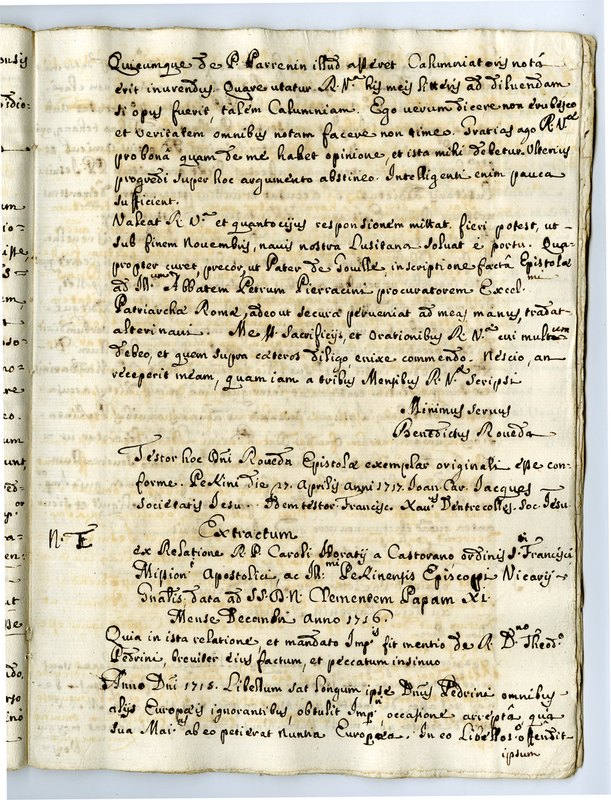 Quicumque de P. Parrenin illud asseret Calumniatoris notâ
erit inurendus. Quare utatur R. Vª his meis litteris ad diluendam
si opus fuerit, talem Calumniam. Ego verum dicere non erubesco
et veritatem omnibus notam facere non timeo. Gratias ago R. Vª
pro bona quam de me habet opinione, et ista mihi debetur. Ulterius
progredi super hoc argumento abstineo. Intelligenti enim pauca
sufficient.
Valeat R. Vª et quantocijus responsionem mittat. fieri potest, ut
sub finem Novembris, navis nostra Lusitana soluat è portu. Qua-
propter curet, precor, ut Pater de Goville, inscriptione factâ Epistolæ
ad Illum Abbatem Petrum Pierracini procuratorem Excel.mi
Patriarchæ Romæ, adeo ut secura perveniat ad meas manus, tradat
alteri navi. Me Sacrificijs, et Orationibus R. Vª cui multum
debeo, et quem supra cæteros diligo, enixe commendo. Nescio, an
receperit meam, quam iam a tribus Mensibus R. Vª Scripsi
Minimus Servus
Benedictus Roveda
Testor hoc Dni Roveda Epistolæ exemplar originali esse con-
forme. Pekini die 27. Aprilis anni 1717. Ioan. Car. Jacques
Societatis Iesu. Idem testor Francisc. Xav. Dentrecolles. Soc. Iesu
N. E
Extractum
ex Relatione R. P. Caroli Horatij a Castorano ordinis S. Francisci
Mission. Apostolici, ac Ill.mi Pekinensis Episcopi Vicarij
Gnalis data ad SS. D. N. Clementem Papam XI.
Mense Decembri anno 1716.
Quia in ista relatione et mandato Imp.s fit mentio de R. D.no Theod.o
Pedrini, breviter eius factum, et peccatum insinuo
Anno Dni 1715. Libellum sat longum ipse Dnus Pedrini omnibus
alijs Europæis ignorantibus, obtulit Imp.ri, occasione arreptâ, quâ
sua Mai.s ab eo petierat Europæa. In eo Libello offendit
ipsum